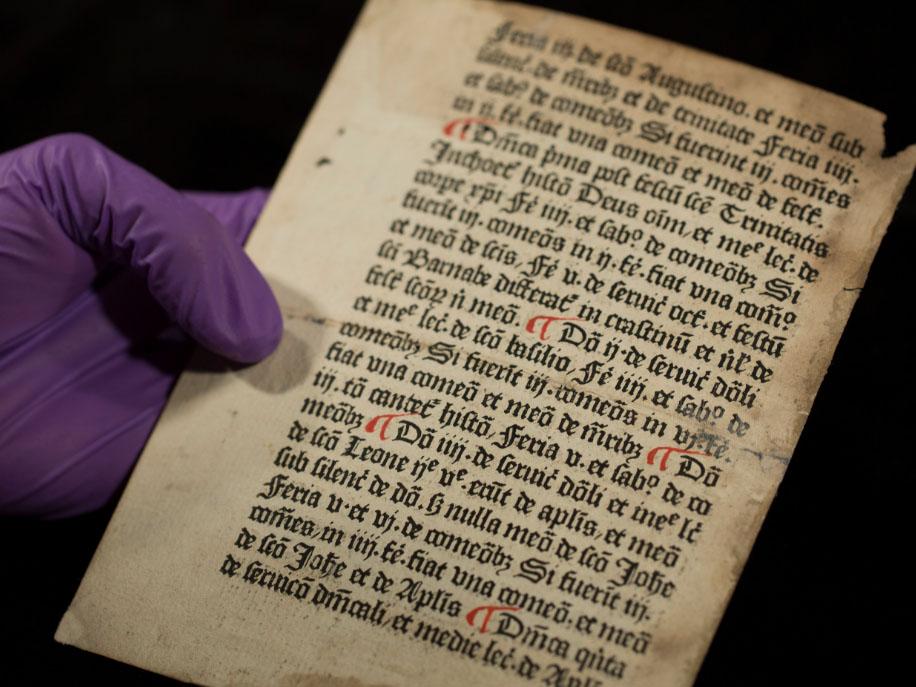 Feria iij. de sc̄o Augustino. et meō sub
silenc̄. de m̄ribꝫ et de trinitate Feria iiij.
et sabº de comeōbꝫ Si fuerint iij. com̄es
in ij. fe̾. fiat vna comeō et meō de fest̾.
¶ Dn̄ica p̄ma post festū sc̄e Trinitatis
Inchoet̾ histō Deus oīm, et meᵉ lec̄. de
corpe xp̄i Fe̾ iiij. et sabº de comeōbꝫ Si
fuerīt iij. comeōs in ij. fe̾. fiat vna com̄º
et meō de sc̄is, Fe̾ v. de seruic̄ oct̾. et festū
sc̄i Barnabe differat̾ in crastinū et nl̄ de
fest̾ sc̄oꝝ n̄ meō. ¶ Dō ij. de seruic̄ dōli
et meᵉ lec̄. de sc̄ō basilio, Fe̾ iiij. et sabº de
comeōbꝫ Si fuerīt iij. comeōs in vj. fe̾.
fiat vna comeō et meō de m̄ribꝫ ¶ Dō
iij. tō cantet̾ histō, Feria v. et sabº de co
meōbꝫ ¶ Dō iiij. de seruic̄ dōli et meᵉ lc̄
de sc̄ō Leone ijᵉ vᵉ. erūt de aplīs, et meō
sub silenc̄ de dō. ꝫ nulla meō de sc̄ō Joh̄e
Feria v. et vj. de comeōbꝫ Si fuerīt iij.
com̄es, in iiij. fe̾. fiat vna comeō. et meō
de sc̄ō Joh̄e et de Aplīs ¶ Dn̄ica qīta
de seruicō dn̄icali, et medie lec̄. de Aplīs